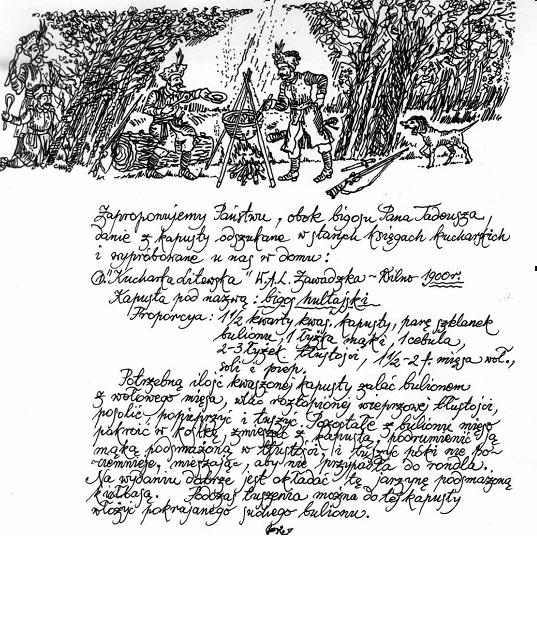 Zaproponujemy Państwu, obok bigosu Pana Tadeusza,
danie z kapusty odszukane w starych księgach kucharskich
i wypróbowane u nas w domu:
"Kucharka Litewska" W.A.L. Zawadzka ~ Wilno 1900r.
Kapusta pod nazwą: bigos hultajski
Proporcya: 1 1/2 kwarty kwaś. kapusty, parę szklanek
bulionu, 1 łyżka mąki, 1 cebula,
2-3 łyżek tłustości, 1 1/2-2 f. mięsa woł.,
soli i piep.
Potrzebną ilość kwaszonej kapusty zalać bulionem
z wołowego mięsa, wlać roztopionej wieprzowej tłustości,
posolić, popieprzyć i tuszyć. Pozostałe z bulionu mięso
pokroić w kostkę, zmieszać z kapustą, podrumienić ją
mąką podsmażoną w tłustości, i tuszyć póki nie po-
ciemnieje, mieszając, aby nie przypadła do rondla..
Na wydaniu dobrze jest okładać tę jarzynę podsmażoną
kiełbasą. Podczas tuszenia można do tej kapusty
włożyć pokrajanego suchego bulionu.